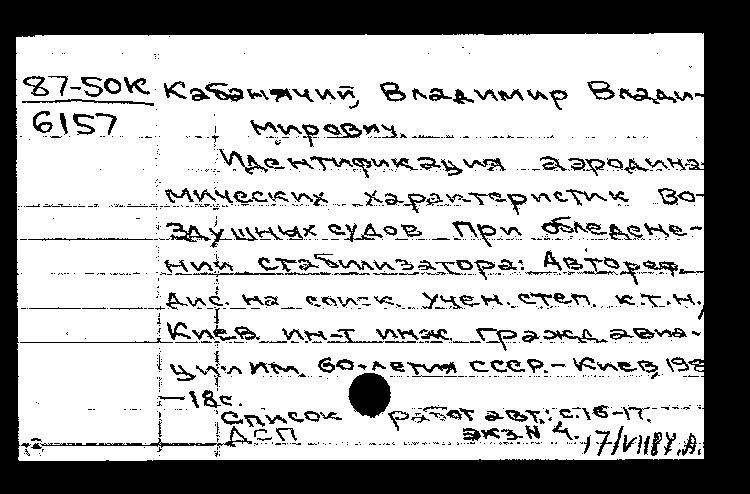 87-50К
6157
Кабанячий, Владимир Влади-
мирович.
Идентификация аэродина-
мических характеристик во-
здушных судов при обледене-
нии стабилизатора: Автореф.
дис. на соиск. учен. степ. к.т.н.
Киев. ин-т инж. гражд. авиа-
ции им. 60-летия СССР. - Киев, 198
- 18 с.
Список работ авт.: с. 16-17.
ДСП экз. N 4. 17/VII 87